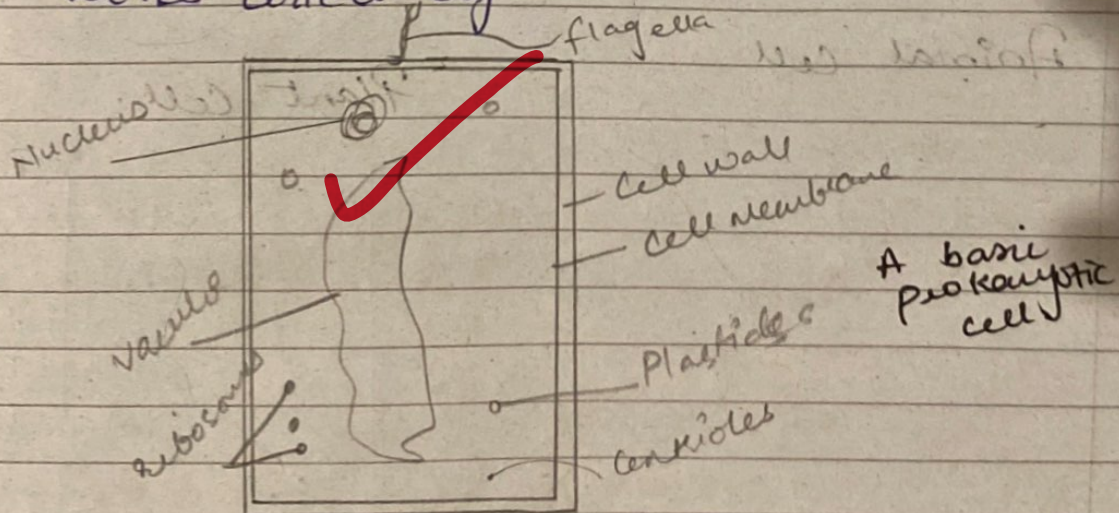 flagella
Nucleus
Cell wall
Cell Membrane
A basic
Prokaryotic
cell
Vacuole
Plastides
Ribosomes
Centrioles